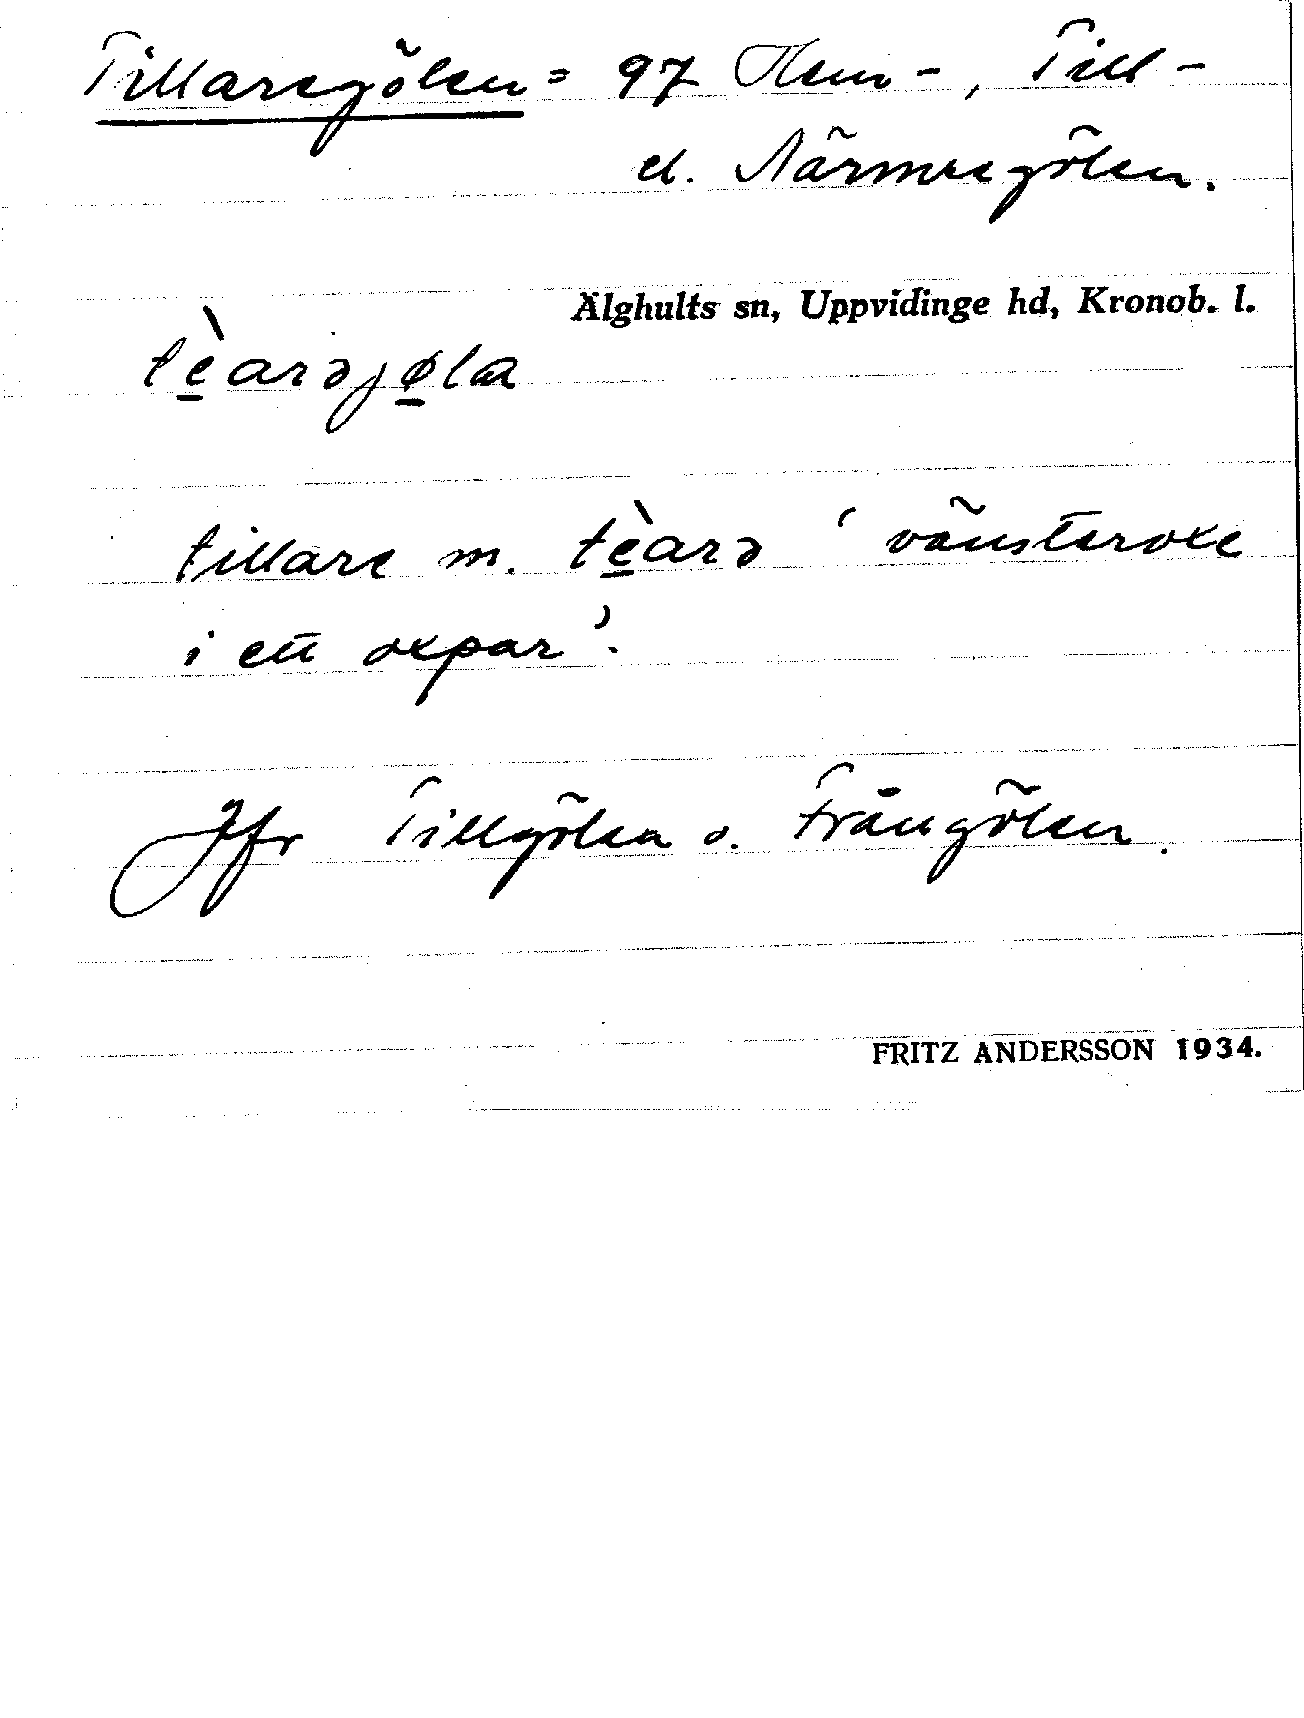 Tillaregölen = 97 Hem-, Till-
el. Närmregölen.
Älghults sn, Uppvidinge hd, Kronob. l.
tèarəjøla
tillare m. tèarə ‘vänsteroxe
i ett oxpar’.
Jfr Tillgölen o. Frångölen.
FRITZ ANDERSSON 1934.